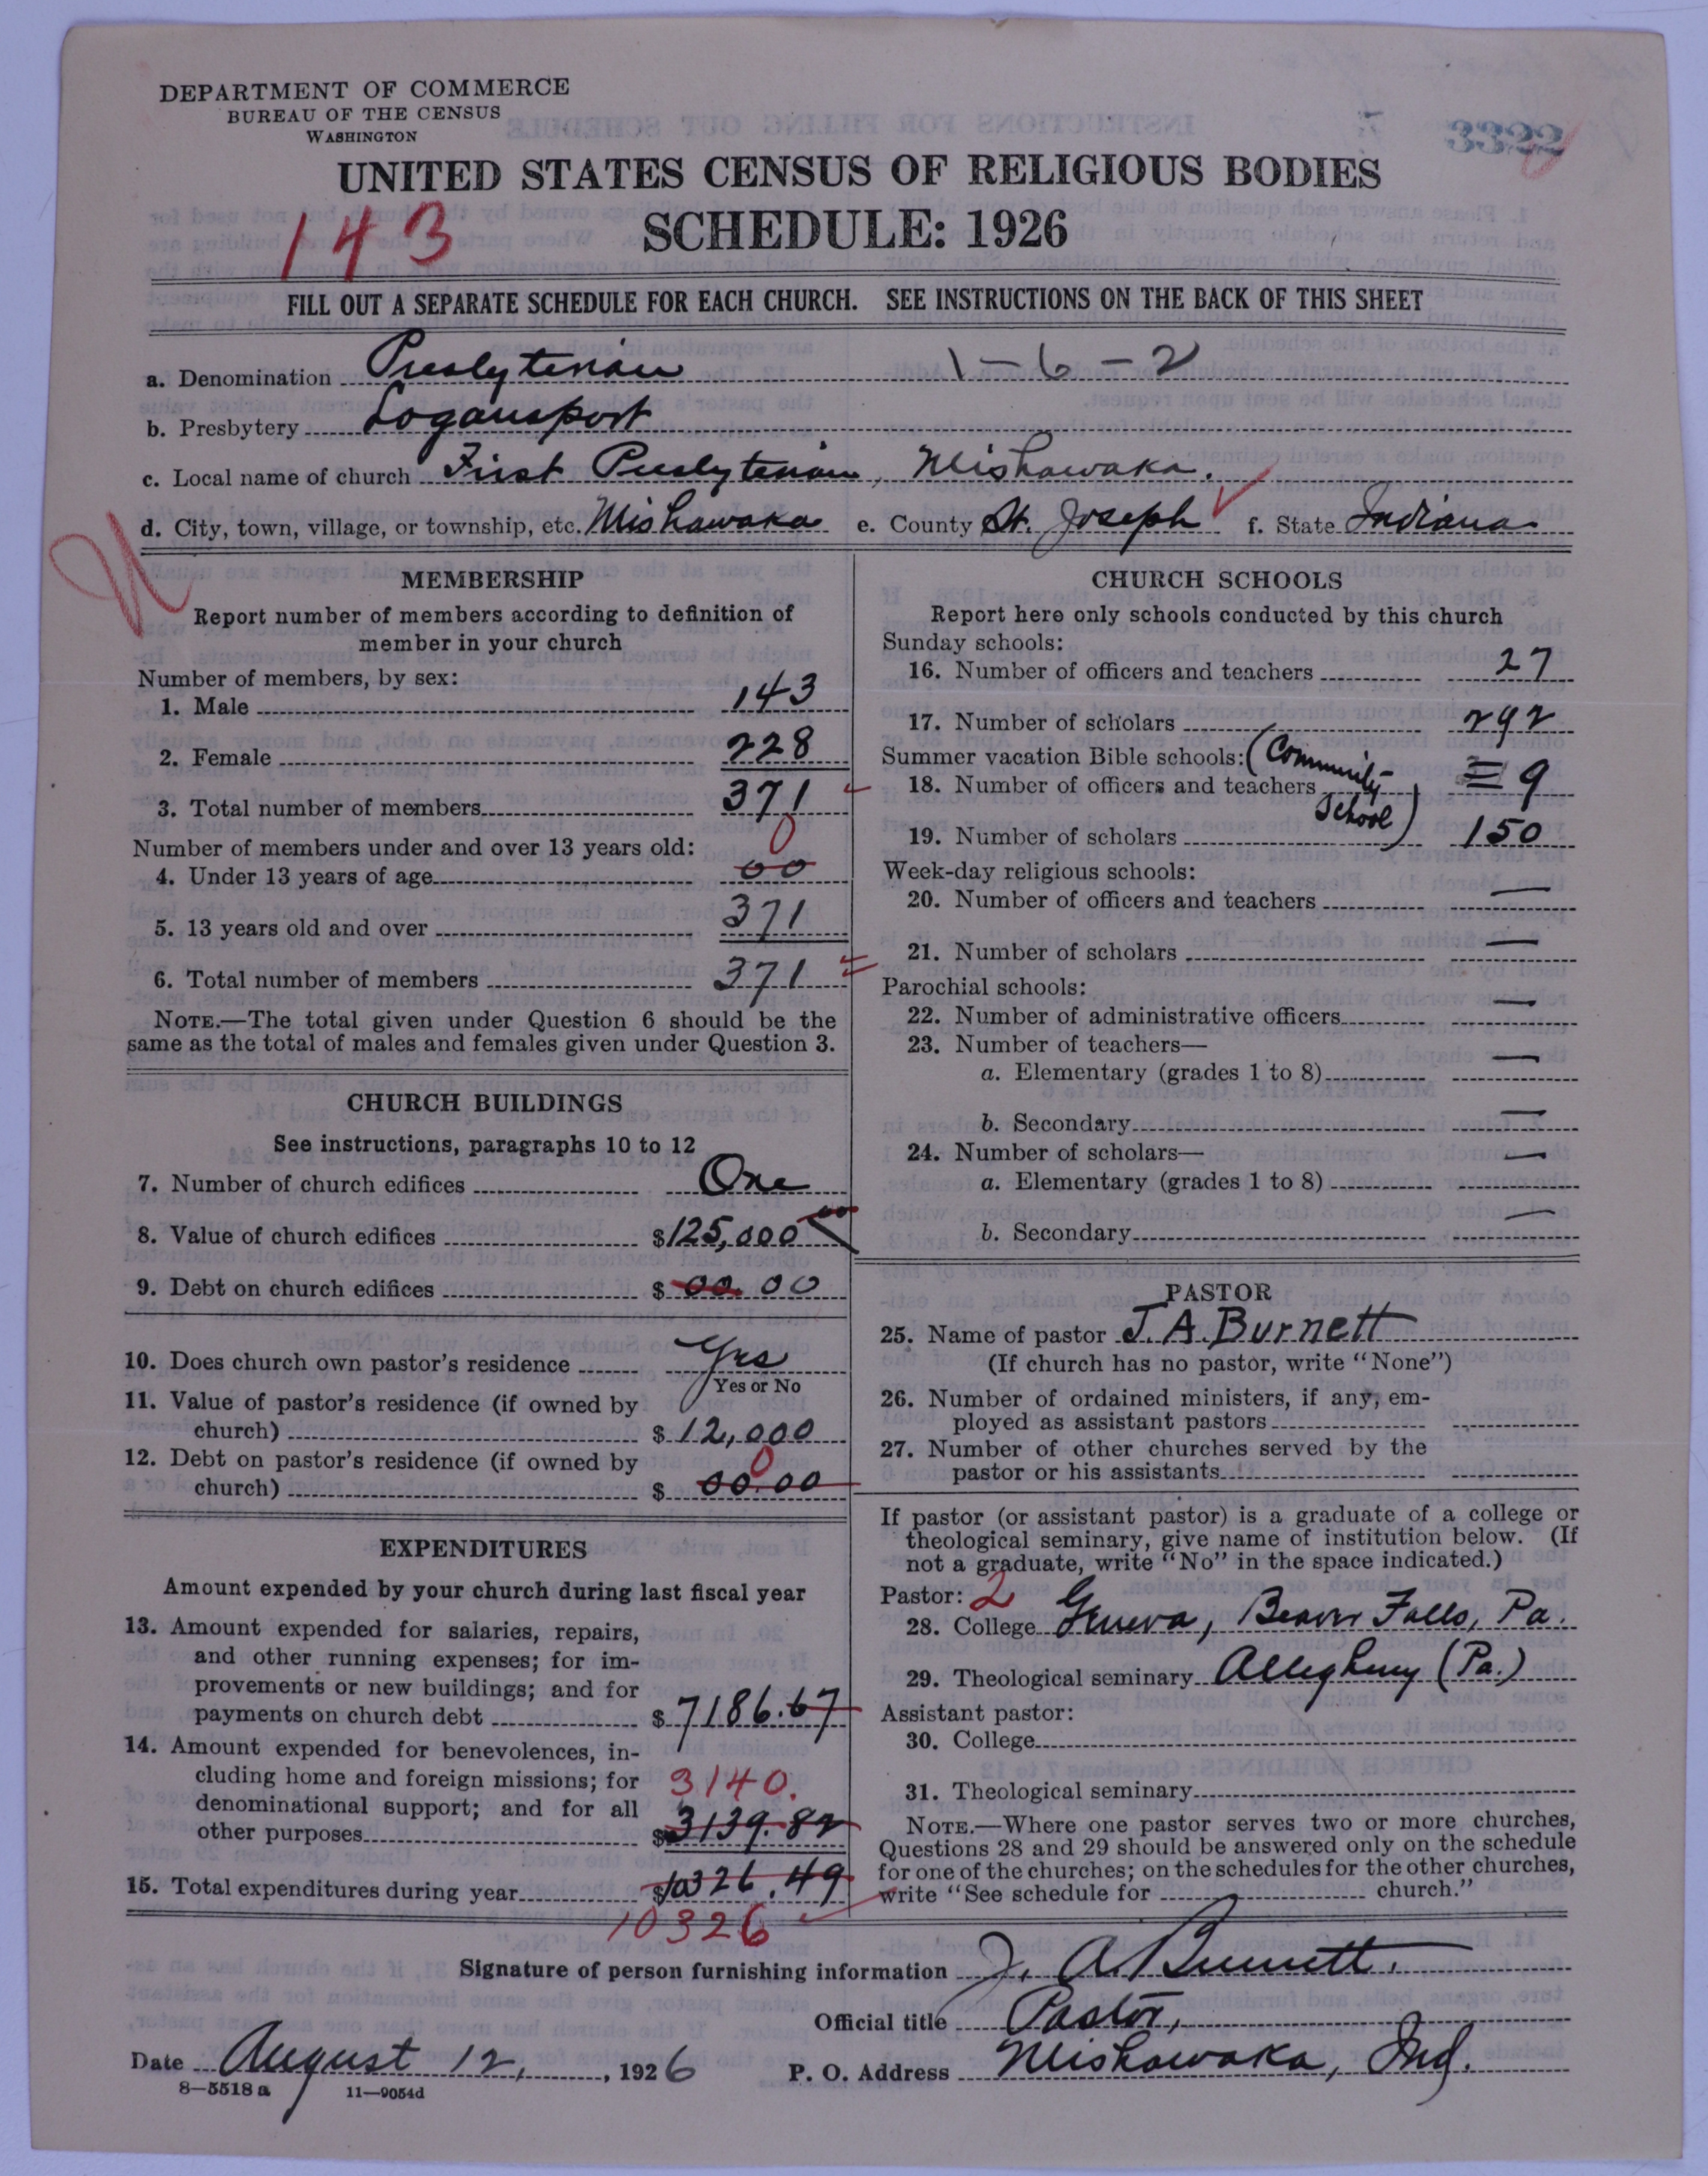 DEPARTMENT OF COMMERCE
BUREAU OF THE CENSUS
WASHINGTON
3322
UNITED STATES CENSUS OF RELIGIOUS BODIES
143
SCHEDULE: 1926
FILL OUT A SEPARATE SCHEDULE FOR EACH CHURCH. SEE INSTRUCTIONS ON THE BACK OF THIS SHEET
a. Denomination Presbyterian 1-6-2
b. Presbytery Logansport
c. Local name of church First Presbyterian, Mishawaka.
d. City, town, village, or township, etc. Mishawaka e. County St. Joseph f. State Indiana
MEMBERSHIP
Report number of members according to definition of
member in your church
Number of members, by sex:
1. Male 143
2. Female 228
3. Total number of members 371
Number of members under and over 13 years old: 0
4. Under 13 years of age 00
5. 13 years old and over 371
6. Total number of members 371
NOTE.—The total given under Question 6 should be the
same as the total of males and females given under Question 3.
CHURCH BUILDINGS
See instructions, paragraphs 10 to 12
7. Number of church edifices One
8. Value of church edifices $125,000 00
9. Debt on church edifices $ 00. 00
10. Does church own pastor's residence Yes
Yes or No
11. Value of pastor's residence (if owned by
church) $ 12,000
12. Debt on pastor's residence (if owned by 0
church) $ 00.00
EXPENDITURES
Amount expended by your church during last fiscal year
13. Amount expended for salaries, repairs,
and other running expenses; for im-
provements or new buildings; and for
payments on church debt $ 7186.67
14. Amount expended for benevolences, in-
cluding home and foreign missions; for 3140.
denominational support; and for all
other purposes $3139.82
15. Total expenditures during year $10326.49
10326
CHURCH SCHOOLS
Report here only schools conducted by this church
Sunday schools:
16. Number of officers and teachers 27
17. Number of scholars 292
Summer vacation Bible schools: (Community
18. Number of officers and teachers 9
School)
19. Number of scholars 150
Week-day religious schools:
20. Number of officers and teachers —
21. Number of scholars —
Parochial schools:
22. Number of administrative officers —
23. Number of teachers—
a. Elementary (grades 1 to 8) —
b. Secondary —
24. Number of scholars—
a. Elementary (grades 1 to 8) —
b. Secondary —
PASTOR
25. Name of pastor J. A. Burnett
(If church has no pastor, write "None")
26. Number of ordained ministers, if any, em-
ployed as assistant pastors
27. Number of other churches served by the
pastor or his assistants
If pastor (or assistant pastor) is a graduate of a college or
theological seminary, give name of institution below. (If
not a graduate, write "No" in the space indicated.)
Pastor: 2
28. College Geneva, Beaver Falls, Pa.
29. Theological seminary Allegheny (Pa.)
Assistant pastor:
30. College
31. Theological seminary
NOTE.—Where one pastor serves two or more churches,
Questions 28 and 29 should be answered only on the schedule
for one of the churches; on the schedules for the other churches,
write "See schedule for church."
Signature of person furnishing information J. A. Burnett.
Official title Pastor,
Date August 12, 1926 P. O. Address Mishawaka, Ind.
8—5518 a 11—9054d